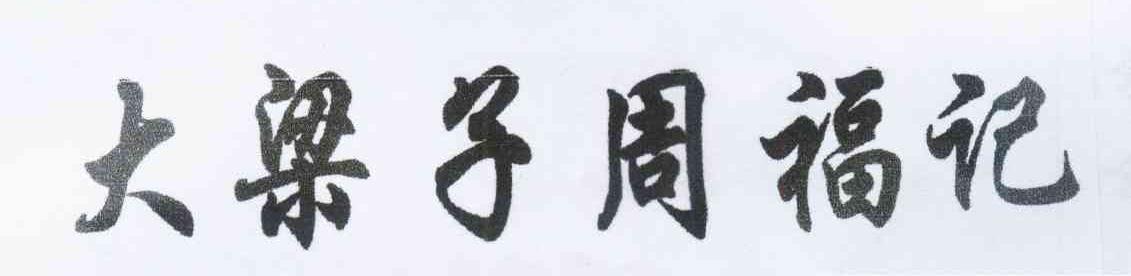 大梁子周福记